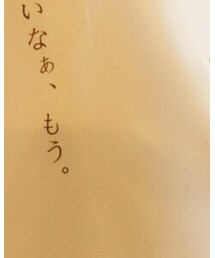 いなぁ、もう。